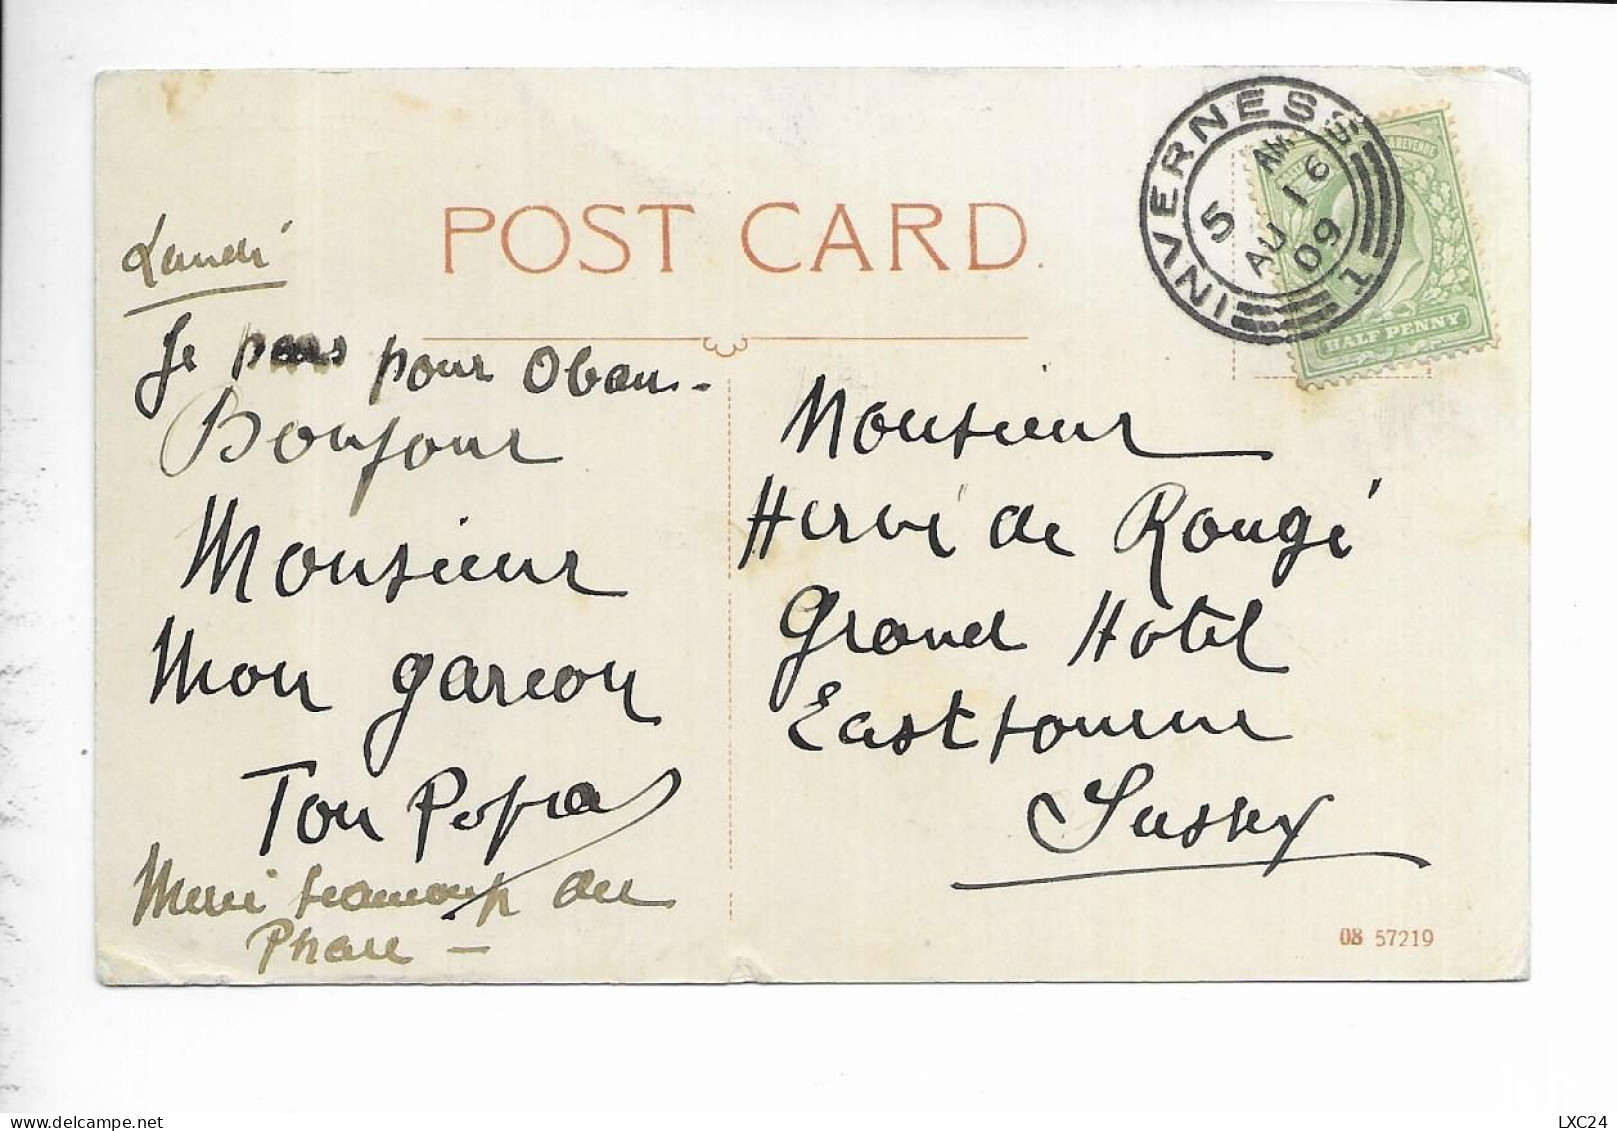 POST CARD
INVERNESS
5 AM
AU 16
09
1
REVENUE
HALF PENNY
Lundi
Je pars pour Oban.
Bonjour
Monsieur
Mon garcon
Ton Papa
Merci beaucoup du
Phare —
Monsieur
Hervé de Rougé
Grand Hotel
Eastbourne
Sussex
08 57219
LXC24